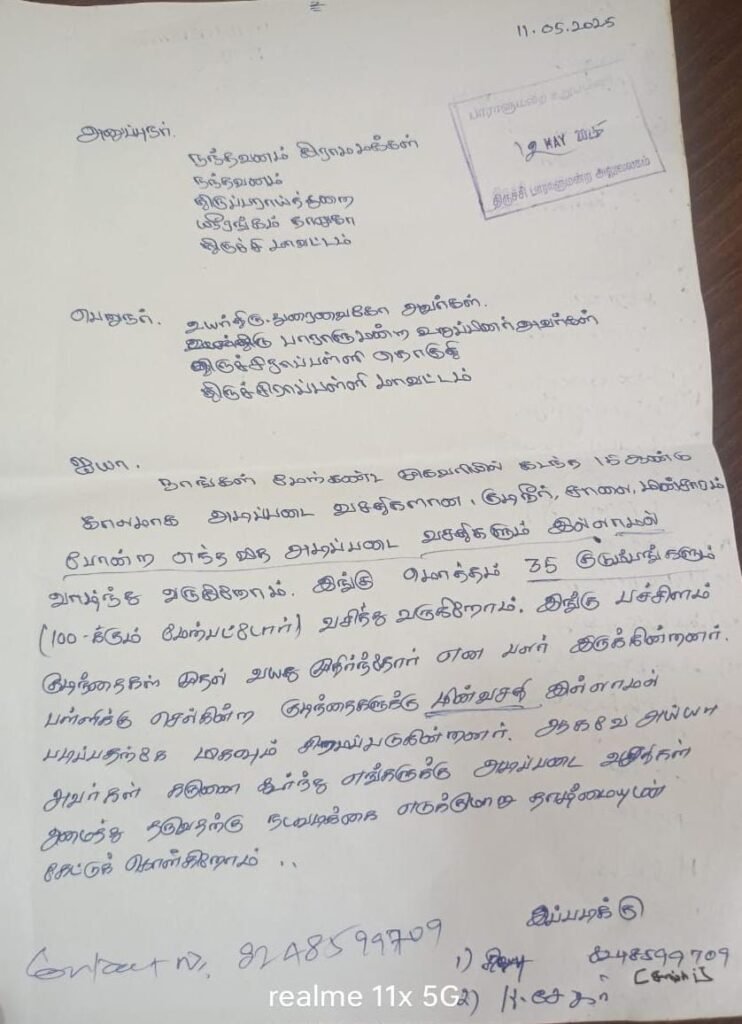 11.05.2025
அனுப்புநர்.
நந்தவனம் கிராமமக்கள்
நந்தவனம்
திருப்பராய்த்துறை
ஸ்ரீரங்கம் தாலுகா
திருச்சி மாவட்டம்
12 MAY 2025
திருச்சி பாராளுமன்ற அலுவலகம்
பெறுநர். உயர்திரு. துரைவைகோ அவர்கள்.
பாராளுமன்ற உறுப்பினர் அவர்கள்
திருச்சிராப்பள்ளி தொகுதி
திருச்சிராப்பள்ளி மாவட்டம்
ஐயா.
நாங்கள் மேற்கண்ட முகவரியில் கடந்த 15 ஆண்டு
காலமாக அடிப்படை வசதிகளான, குடிநீர், சாலை, மின்சாரம்
போன்ற எந்த வித அடிப்படை வசதிகளும் இல்லாமல்
வாழ்ந்து வருகிறோம். இங்கு மொத்தம் 35 குடும்பங்களும்
(100-க்கும் மேற்பட்டோர்) வசித்து வருகிறோம். இங்கு பச்சிளம்
குழந்தைகள் முதல் வயது முதிர்ந்தோர் என பலர் இருக்கின்றனர்.
பள்ளிக்கு செல்கின்ற குழந்தைகளுக்கு மின்வசதி இல்லாமல்
படிப்பதற்கே மிகவும் சிரமப்படுகின்றனர். ஆகவே அய்யா
அவர்கள் கருணை கூர்ந்து எங்களுக்கு அடிப்படை வசதிகள்
அமைத்து தருவதற்கு நடவடிக்கை எடுக்குமாறு தாழ்மையுடன்
கேட்டுக் கொள்கிறோம் ..
இப்படிக்கு
Contact No, 8248599709
1) 8248599709
2) K. சேகர்
realme 11x 5G